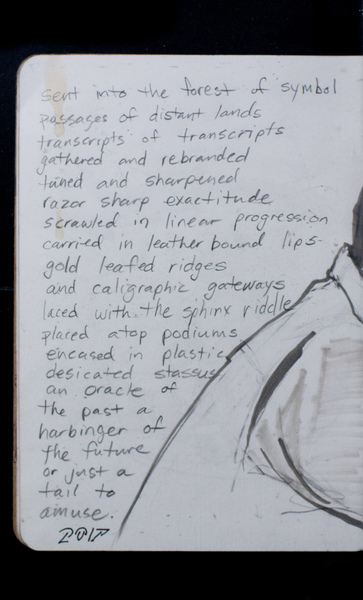 sent into the forest of symbol
passages of distant lands
transcripts of transcripts
gathered and rebranded
tuned and sharpened
razor sharp exactitude
scrawled in linear progression
carried in leather bound lips-
gold leafed ridges
and caligraphic gateways
laced with the sphinx riddle
placed atop podiums
encased in plastic
desicated stassus
an oracle of
the past a
harbinger of
the future
or just a
tail to
amuse.
2017